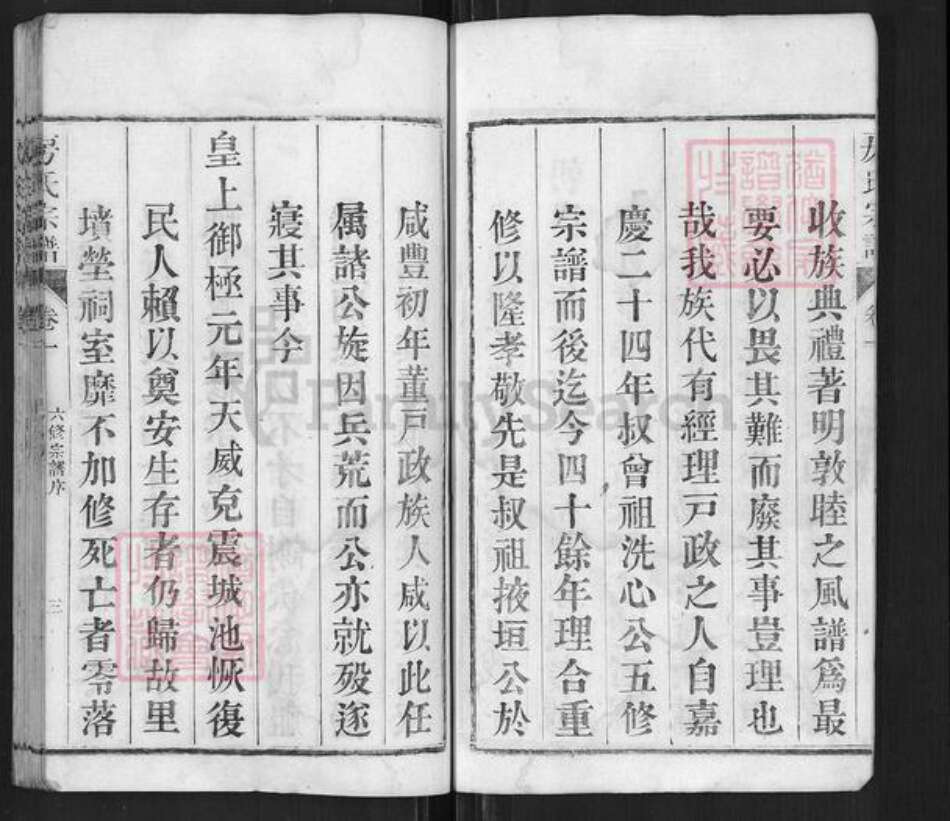 收族典禮著明敦睦之風譜爲最
要必以畏其難而廢其事豈理也
哉我族代有經理戸政之人自嘉
慶二十四年叔曾祖洗心公五修
宗譜而後迄今四十餘年理合重
修以隆孝敬先是叔祖掖垣公於
咸豐初年董戸政族人咸以此任
属諸公旋因兵荒而公亦就殁遂
寢其事今
皇上御極元年天威克震城池恢復
民人賴以奠安生存者仍歸故里
墳塋祠室靡不加修死亡者零落
房氏宗譜
卷一
六修宗譜序
三
FamilySearch